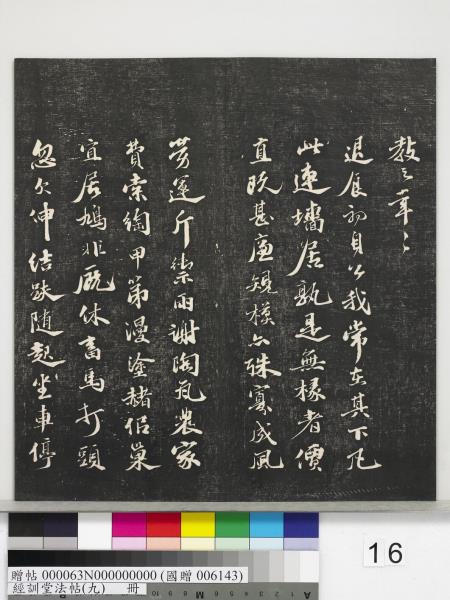 教之幸之
退食初自公我常在其下凡
此連墻居孰是無椽者價
直既甚廉規模亦殊寡成風
勞運斤禦雨謝陶瓦農家
費索綯甲第漫塗赭侶巢
宜居鳩非廐休畜馬打頭
忽欠伸結趺隨起坐車停
16
贈帖 000063N000000000 (國贈 006143)
經訓堂法帖(九) 冊